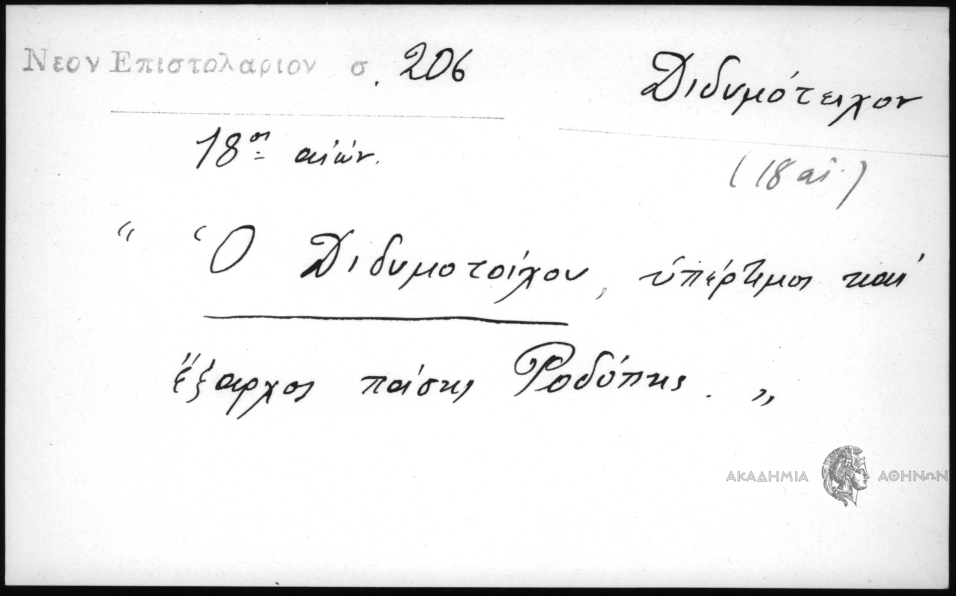 Νεον Επιστολαριον σ. 206
Διδυμότειχον
18ος αἰών.
(18 αἰ.)
“ Ὁ Διδυμοτοίχου, ὑπέρτιμος καὶ
ἔξαρχος πάσης Ροδόπης. „
ΑΚΑΔΗΜΙΑ ΑΘΗΝΩΝ